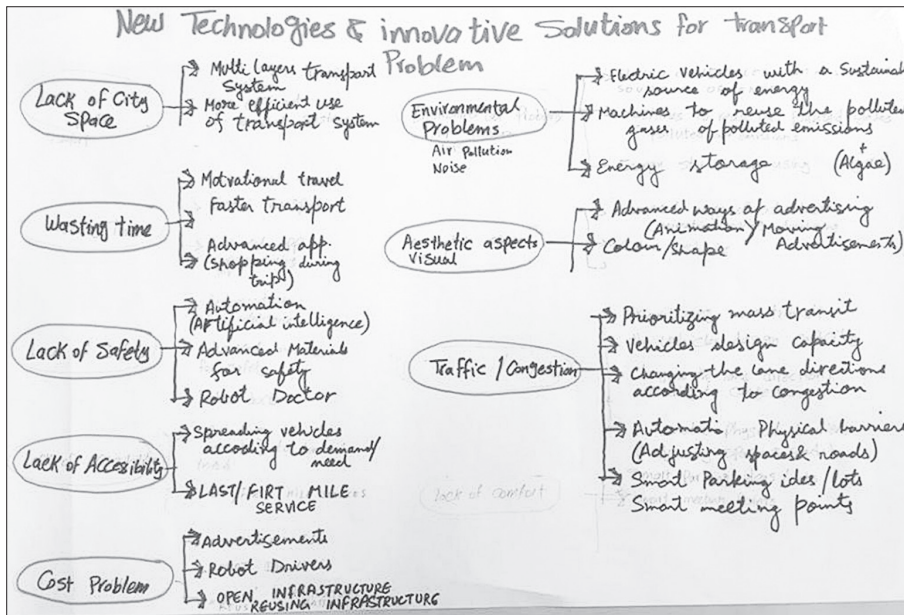 New Technologies & innovative Solutions for transport
Problem
Lack of City
Space
Multi layers transport
System
More efficient use
of transport system
Wasting time
Motvational travel
Faster transport
Advanced app.
(shopping during
trip)
Lack of Safety
Automation
(Artificial intelligence)
Advanced Materials
for safety
Robot Doctor
Lack of Accessibility
Spreading vehicles
according to demand/
need
LAST/FIRT MILE
SERVICE
Cost Problem
Advertisements
Robot Drivers
OPEN INFRASTRUCTURE
REUSING INFRASTRUCTURE
Environmental
Problems
Air Pollution
Noise
Electric vehicles with a Sustainab
source of energy
Machines to reuse the polluted
gases of polluted emissions
+
Energy storage (Algae)
Aesthetic aspects
visual
Advanced ways of advertising
(Animation/Moving
Advertisements)
Colour/shape
Traffic/Congestion
Prioritizing mass transit
Vehicles design capacity
Changing the lane directions
according to congestion
Automatic Physical barriers
(Adjusting spaces & roads)
Smart Parking ides/lots
Smart meeting points
lack of comfort